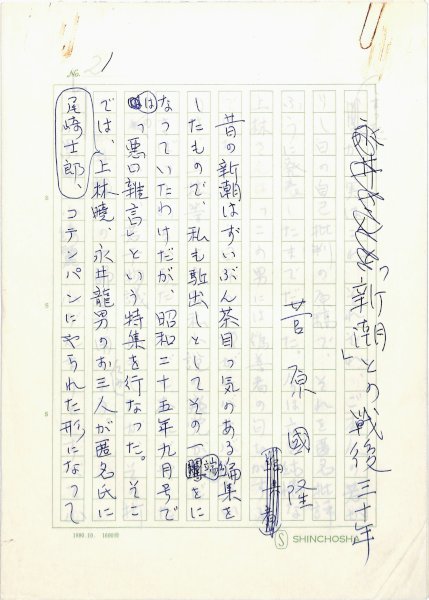 No. 2
「新潮」との戦後三十年
菅原國隆
昔の新潮はずいぶん茶目っ気のある編集を
したもので、私も駈出しとしてその一端をに
なっていたわけだが、昭和二十五年九月号で
は「悪口雑言」という特集を行なった。そこ
では、上林暁、永井龍男のお三人が匿名氏に
尾崎士郎、
コテンパンにやられた形になって
5
5
5
1980.10. 1000冊
S SHINCHOSHA